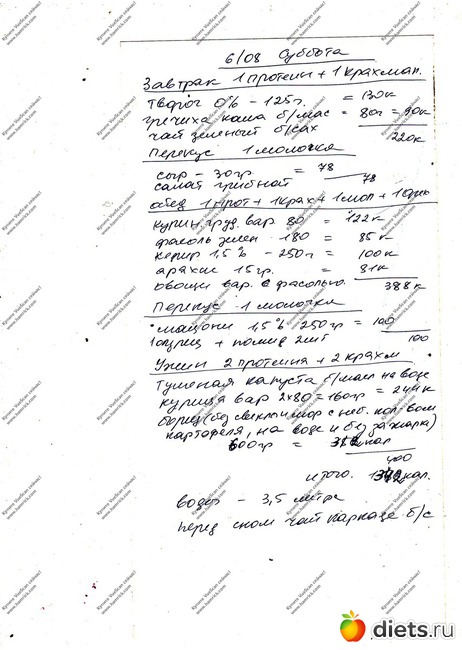 6/08 Суббота
Завтрак 1 протеин + 1 крахмал.
творог 0% - 125 г. = 130к
гречиха каша б/мас = 80г = 90к
чай зеленый б/сах 220к
Перекус 1 молочка
сыр - 30гр = 78
салат грибной 78
обед 1 прот + 1 крах + 1 мол +
курин. груд. вар 80 = 122к
фасоль зелен 180 = 85к
кефир 1,5% - 250г = 100к
арахис 15 гр. = 81к
овощи вар. с фасолью. 388к
Перекус 1 молочка
мацони 1,5% 250гр = 100
1 огурец + помид 2шт 100
Ужин 2 протеина + 2 крахм
Тушеная капуста б/масл на воде
курица вар 2х80 = 160гр = 244к
борщ (без свеклы и мор с неб. кол-вом
картофеля, на воде и без зажарки)
600гр =
400
итого. кал.
вода - 3,5 литра
перед сном чай каркаде б/с
diets.ru
Купите VueScan сейчас!
www.hamrick.com